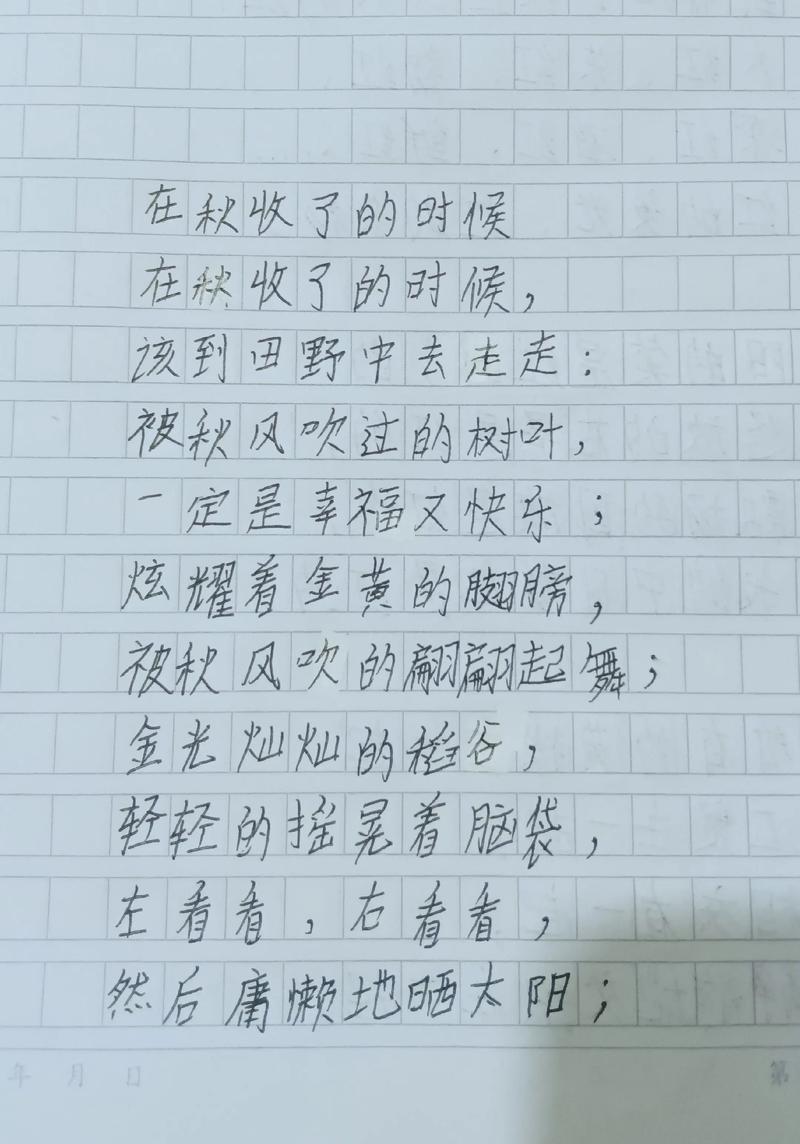 在秋收了的时候
在秋收了的时候，
该到田野中去走走：
被秋风吹过的树叶，
一定是幸福又快乐；
炫耀着金黄的翅膀，
被秋风吹的翩翩起舞；
金光灿灿的稻谷，
轻轻的摇晃着脑袋，
左看看，右看看，
然后庸懒地晒太阳；
年 月 日
第